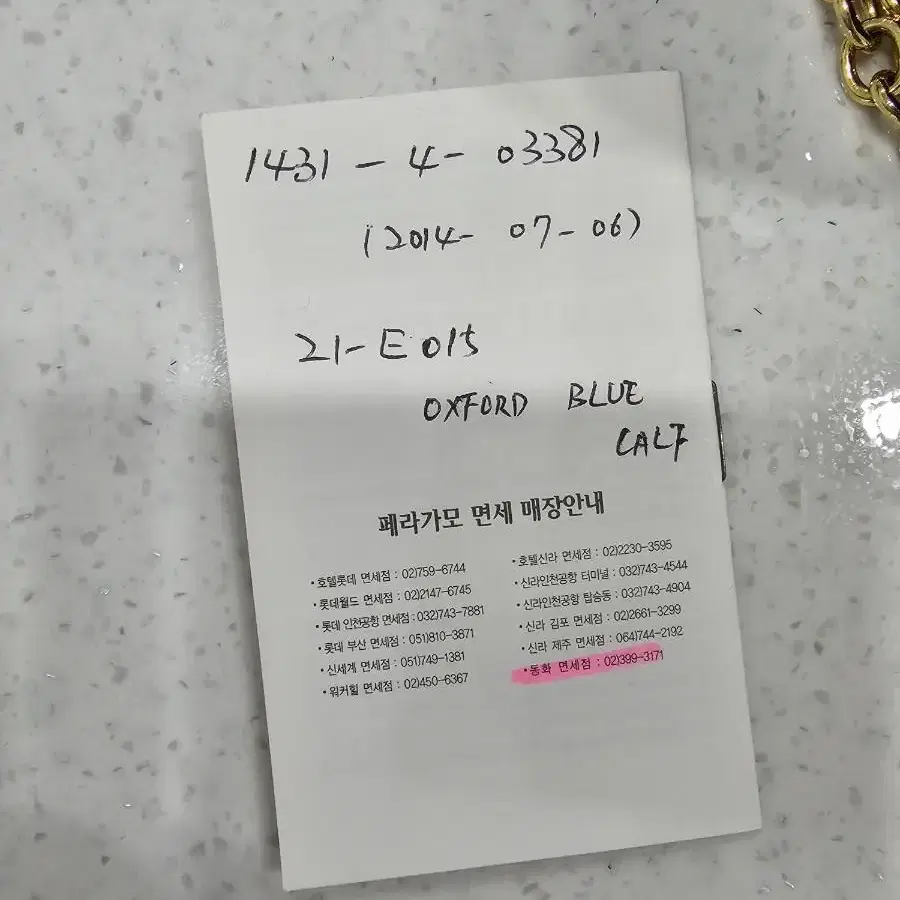 1431 - 4 - 03381
(2014 - 07 - 06)
21 - E015
OXFORD BLUE
CALF
페라가모 면세 매장안내
• 호텔롯데 면세점 : 02)759-6744
• 롯데월드 면세점 : 02)2147-6745
• 롯데 인천공항 면세점 : 032)743-7881
• 롯데 부산 면세점 : 051)810-3871
• 신세계 면세점 : 051)749-1381
• 워커힐 면세점 : 02)450-6367
• 호텔신라 면세점 : 02)2230-3595
• 신라인천공항 터미널 : 032)743-4544
• 신라인천공항 탑승동 : 032)743-4904
• 신라 김포 면세점 : 02)2661-3299
• 신라 제주 면세점 : 064)744-2192
• 동화 면세점 : 02)399-3171